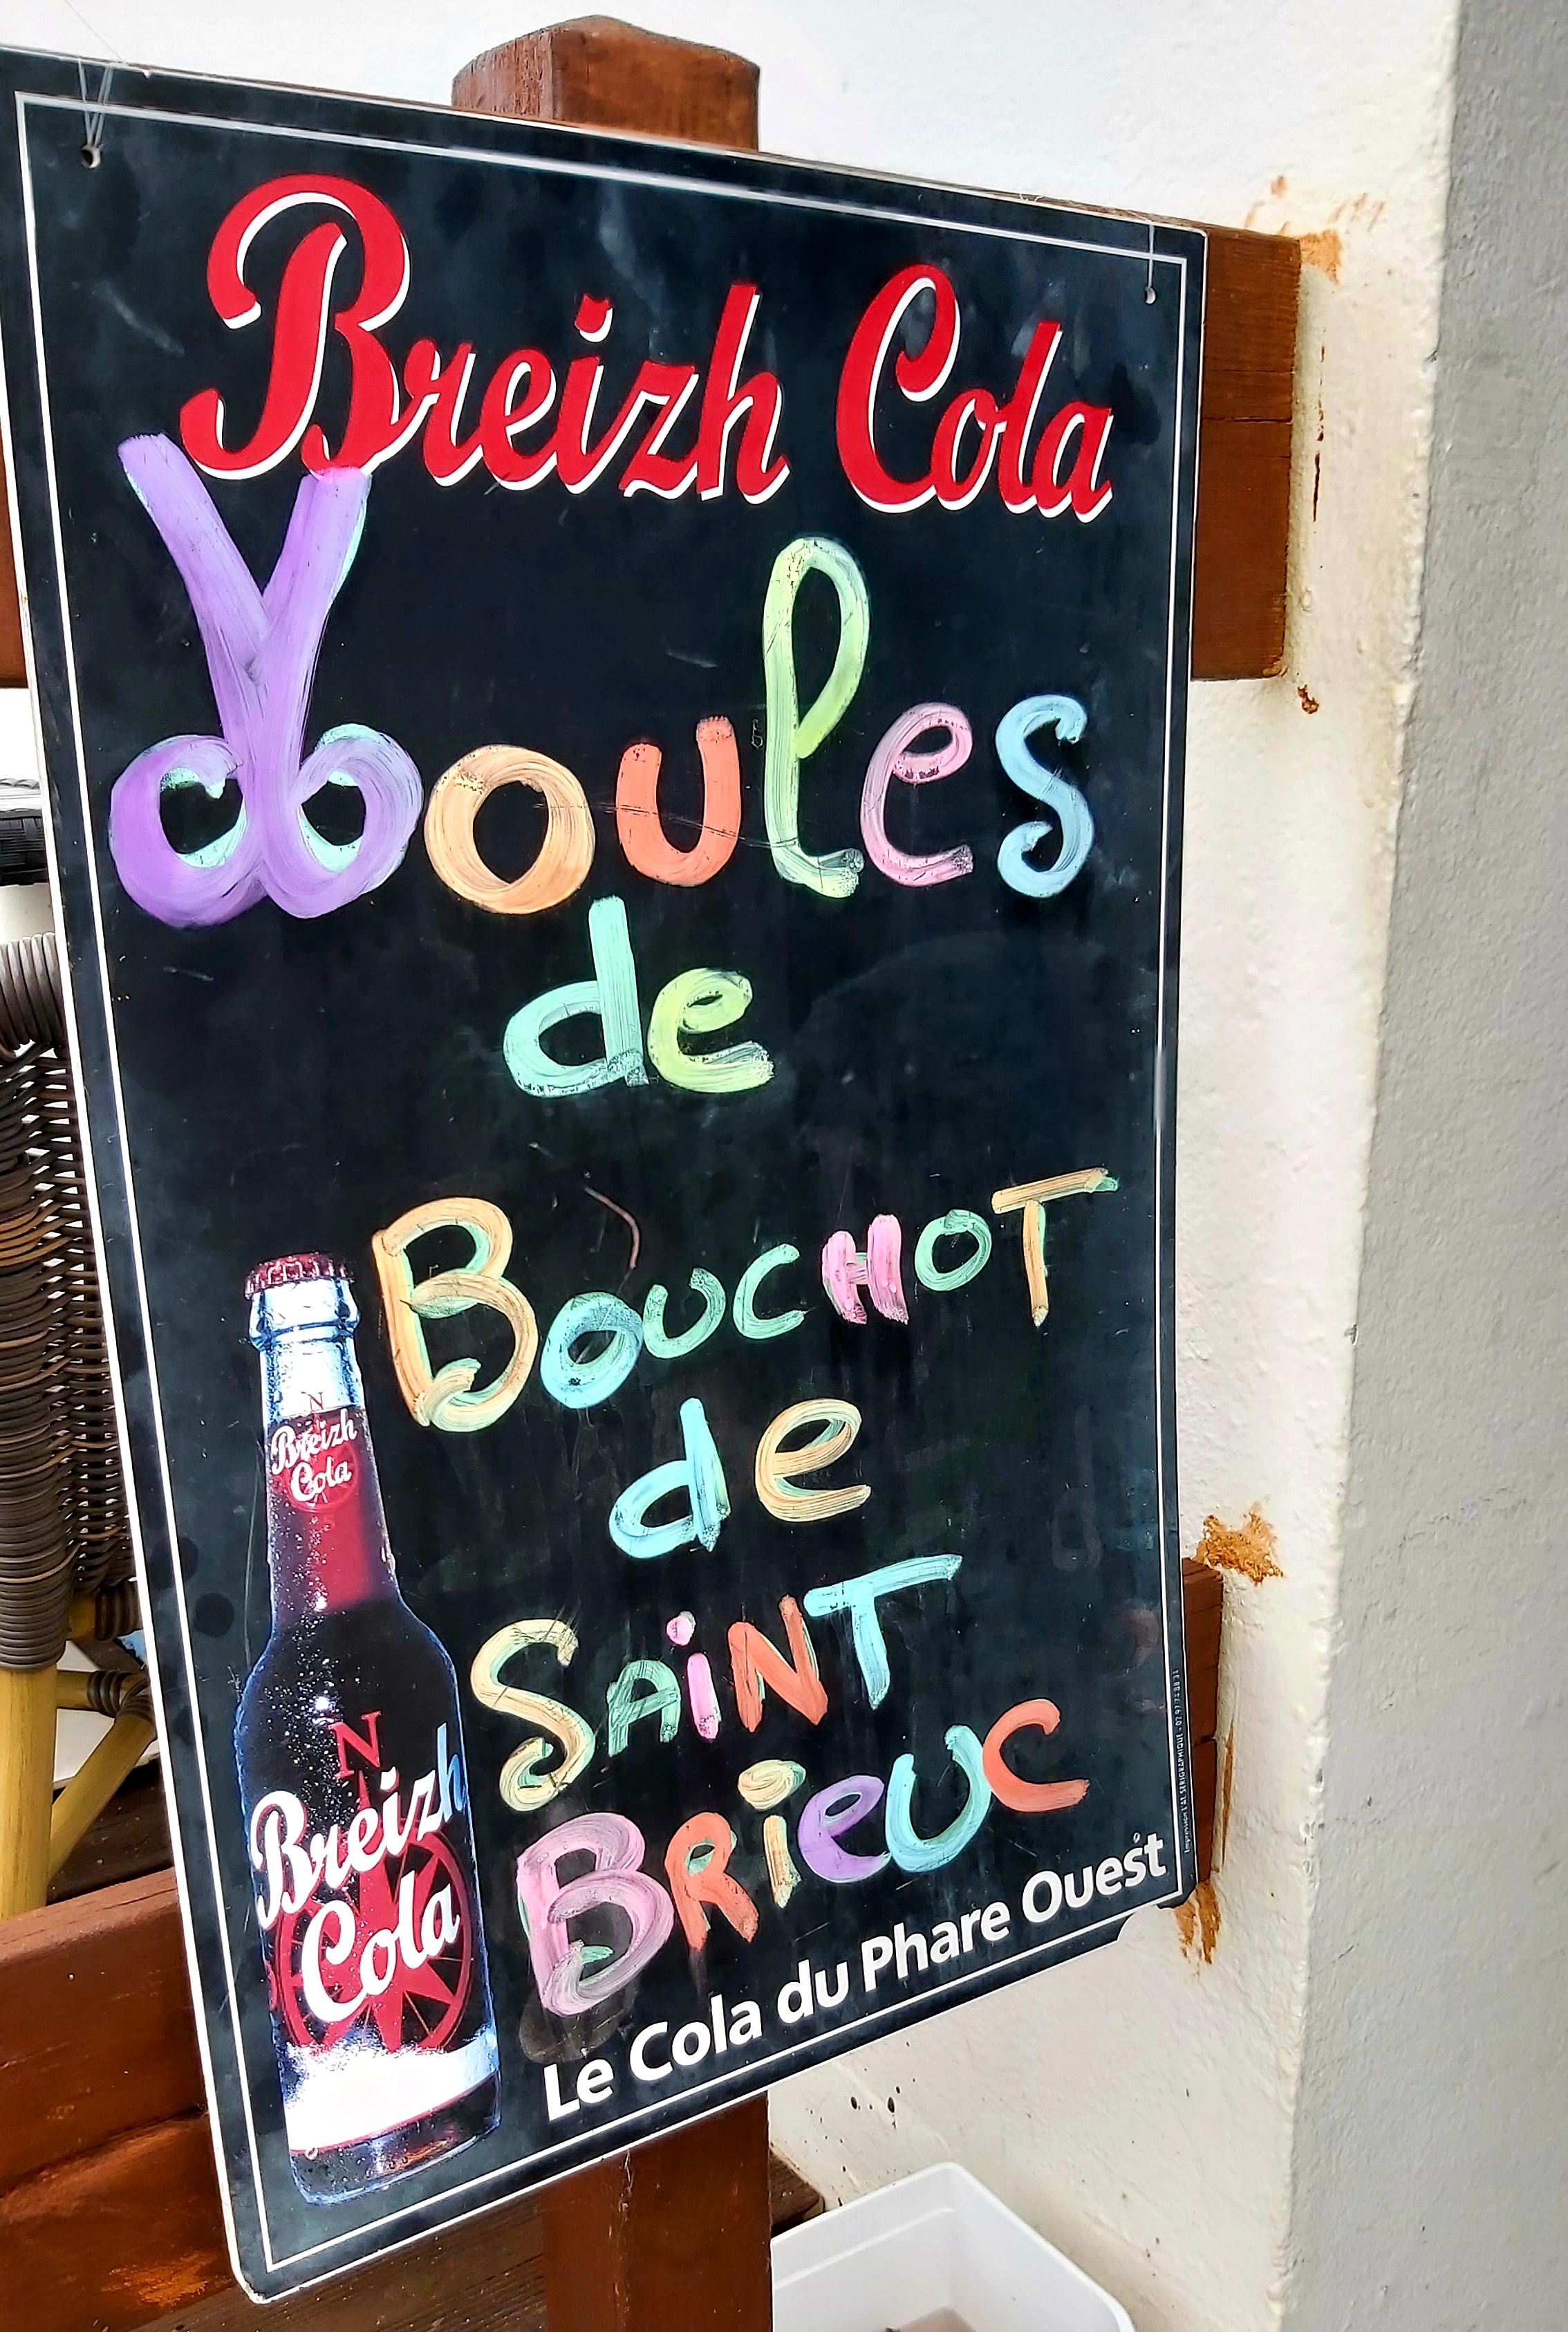 Breizh Cola
Moules
de
BOUCHOT
de
SAiNT
BRieUC
Le Cola du Phare Ouest
N
Breizh
Cola
N
Breizh
Cola